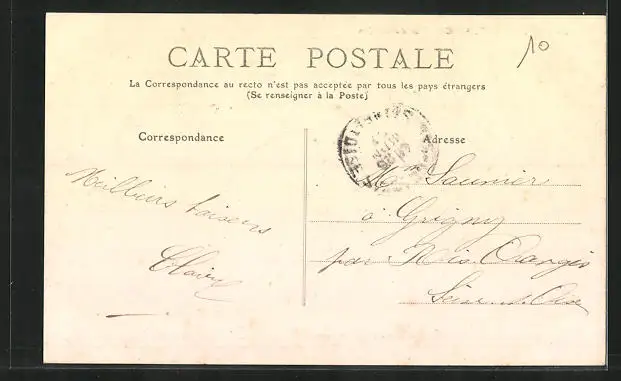 10
CARTE POSTALE
La Correspondance au recto n'est pas acceptée par tous les pays étrangers
(Se renseigner à la Poste)
Correspondance
Adresse
Meilleurs baisers
Mme Saunier
à Grigny
par Ris Orangis
Seine & Oise